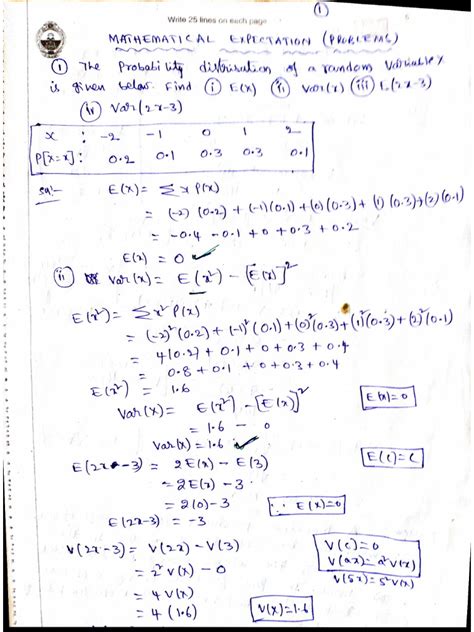 Write 25 lines on each page
1
MATHEMATICAL EXPECTATION (PROBLEMS)
① The Probability distribution of a random Variable X
is given below. Find (i) E(x) (ii) Var(x) (iii) E(2x-3)
(iv) Var(2x-3)
x : -2 -1 0 1 2
P[X=x] : 0.2 0.1 0.3 0.3 0.1
Sol:- E(x) = Σ x P(x)
= (-2)(0.2) + (-1)(0.1) + (0)(0.3) + (1)(0.3) + (2)(0.1)
= -0.4 - 0.1 + 0 + 0.3 + 0.2
E(x) = 0 ✓
(ii) Var(x) = E(x²) - [E(x)]²
E(x²) = Σ x² P(x)
= (-2)²(0.2) + (-1)²(0.1) + (0)²(0.3) + (1)²(0.3) + (2)²(0.1)
= 4(0.2) + 0.1 + 0 + 0.3 + 0.4
= 0.8 + 0.1 + 0 + 0.3 + 0.4
E(x²) = 1.6
Var(x) = E(x²) - [E(x)]² E(x)=0
= 1.6 - 0
Var(x) = 1.6 ✓
E(2x-3) = 2E(x) - E(3) E(c)=c
= 2E(x) - 3
= 2(0) - 3 ∵ E(x)=0
E(2x-3) = -3
V(2x-3) = V(2x) - V(3) V(c)=0
= 2²V(x) - 0 V(ax)=a²V(x)
= 4V(x) V(5x)=5²V(x)
= 4(1.6) V(x)=1.6